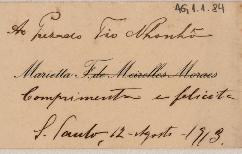 AG.1.1.84
Ao Presado Tio Nhonhô
Marietta F. de Meirelles Moraes
Comprimenta e felicita
S. Paulo, 12-Agosto-1913.